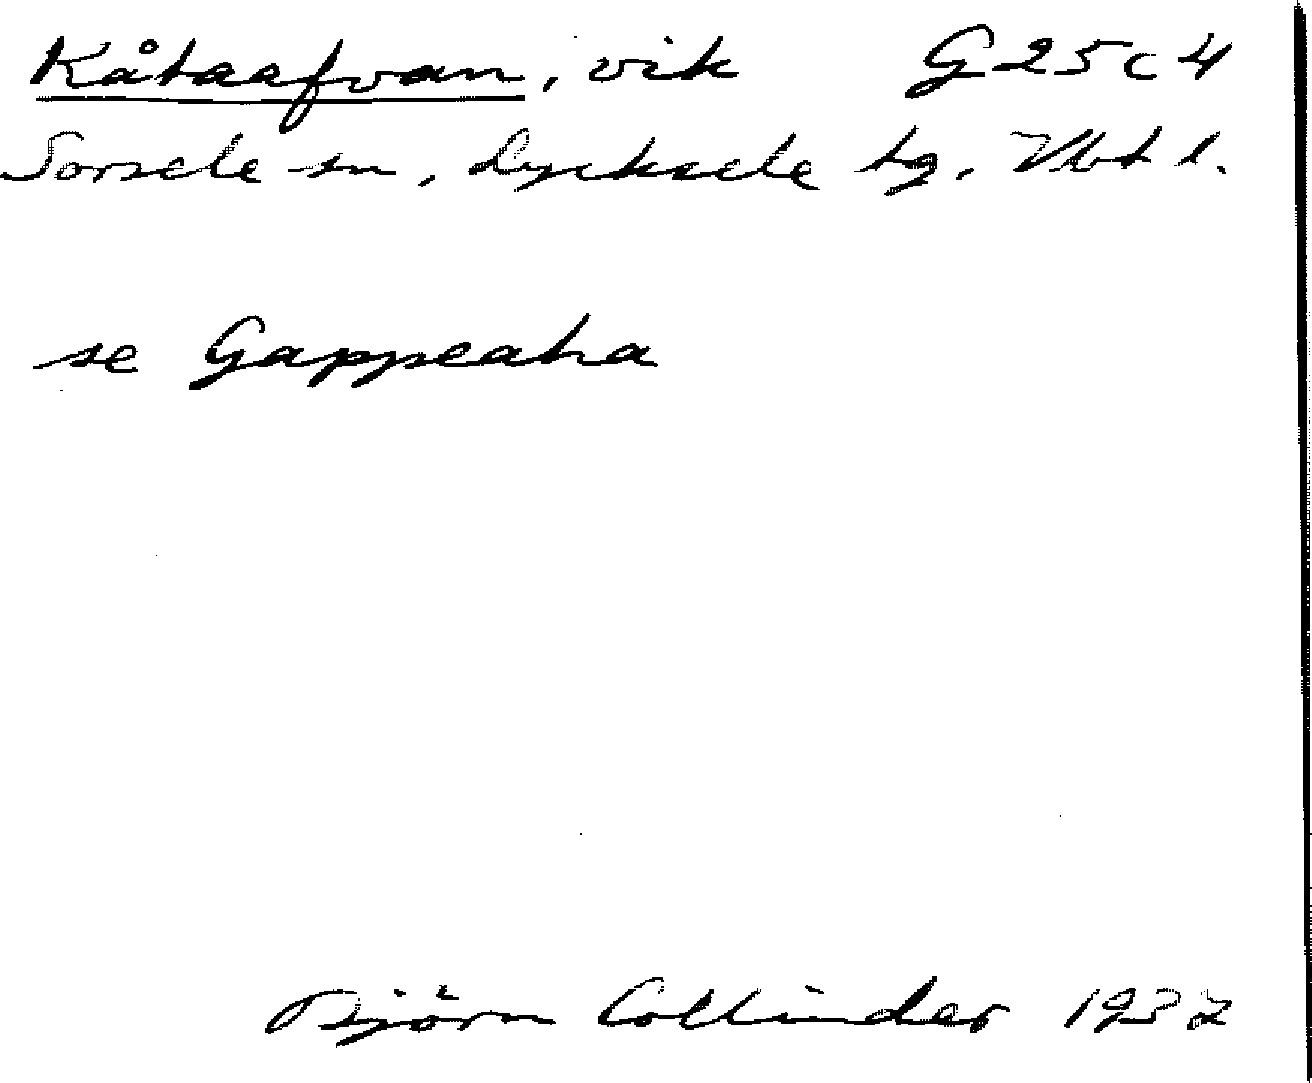 Kåtaafvan, vik G25c4
Sorsele sn, Lycksele tg. Vbt l.
se Gappeaha
Björn Collinder 1937